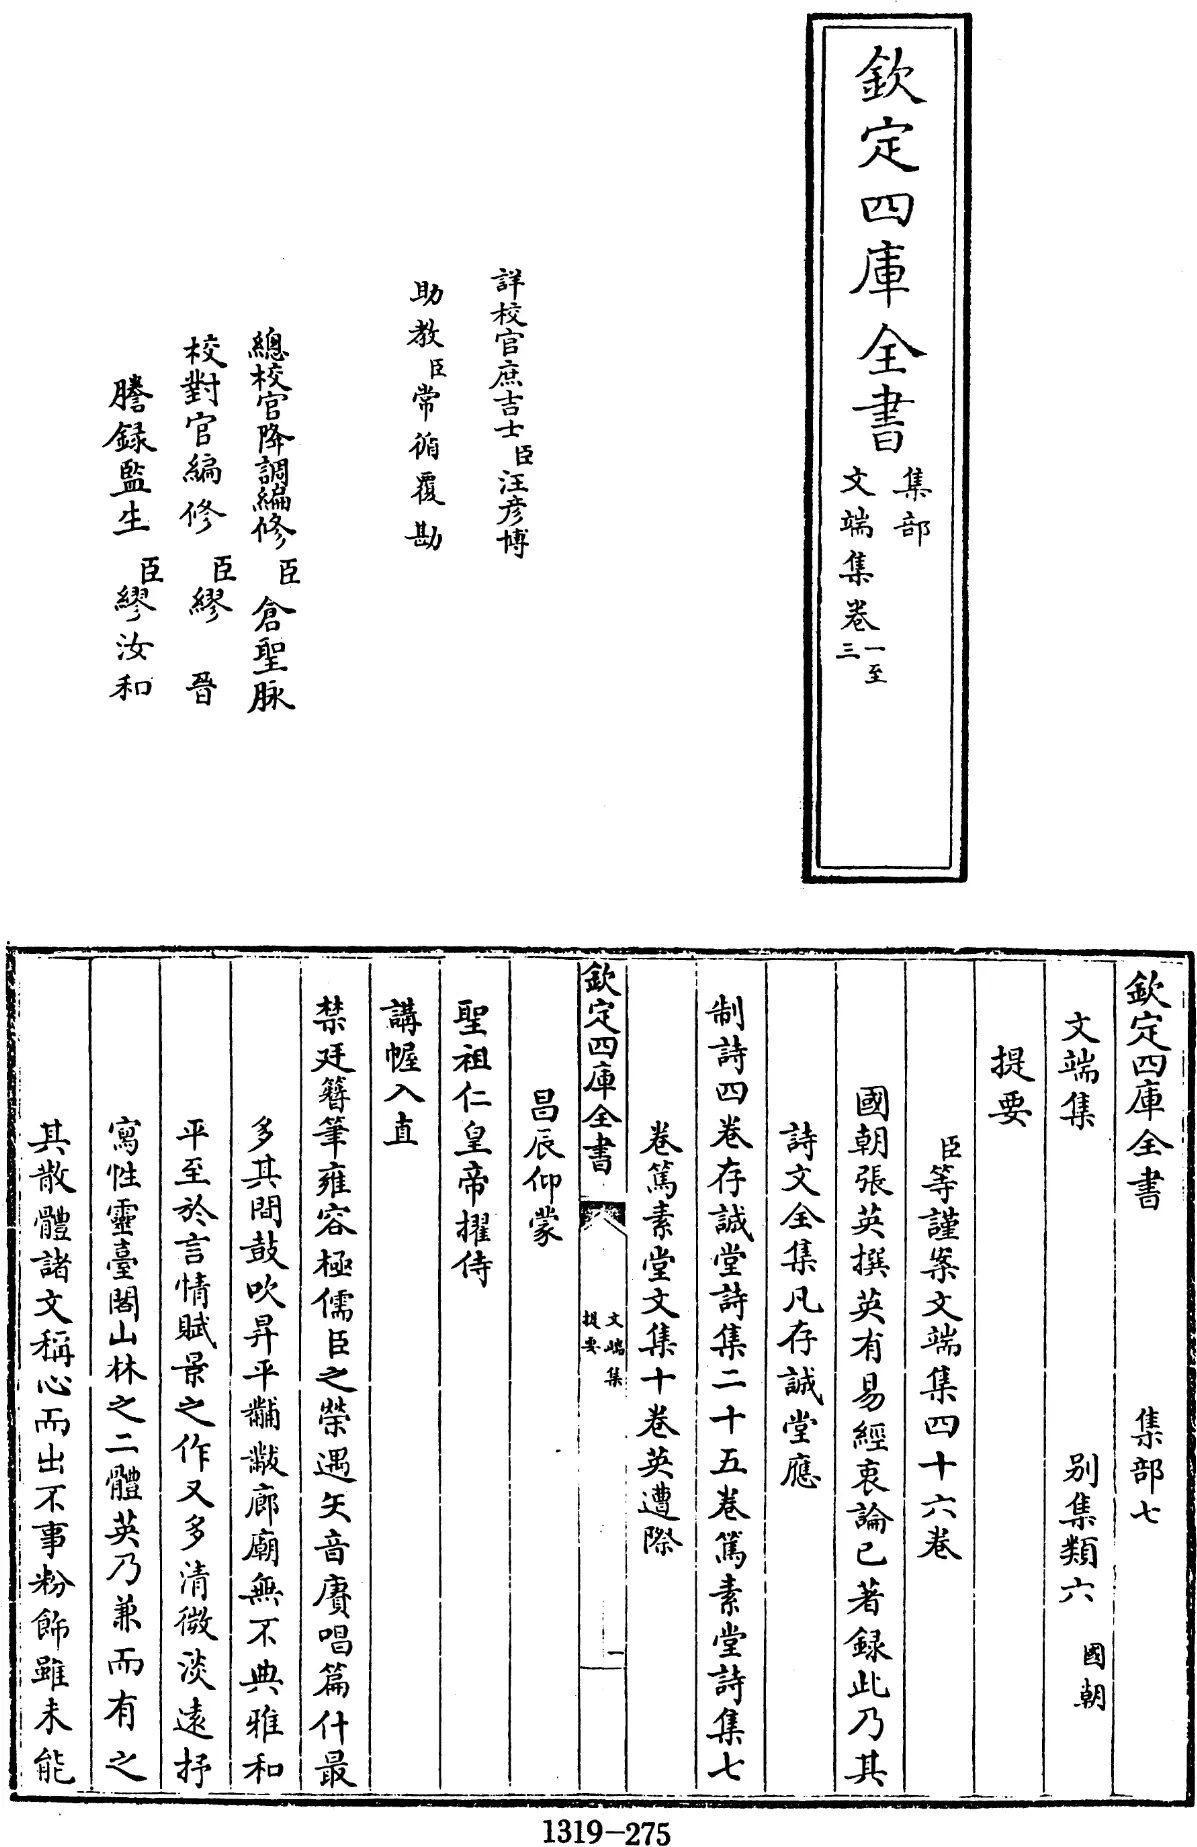 欽定四庫全書
集部
文端集卷一至三
詳校官庶吉士臣汪彥博
助教臣常循覆勘
總校官降調編修臣倉聖脉
校對官編修臣繆晉
謄録監生臣繆汝和
欽定四庫全書 集部七
文端集 别集類六 國朝
提要
臣等謹案文端集四十六卷
國朝張英撰英有易經衷論已著録此乃其
詩文全集凡存誠堂應
制詩四卷存誠堂詩集二十五卷篤素堂詩集七
卷篤素堂文集十卷英遭際
欽定四庫全書 文端集 提要 一
昌辰仰蒙
聖祖仁皇帝擢侍
講幄入直
禁廷簪筆雍容極儒臣之榮遇矢音賡唱篇什最
多其間鼓吹昇平黼黻廊廟無不典雅和
平至於言情賦景之作又多清微淡遠抒
寫性靈臺閣山林之二體英乃兼而有之
其散體諸文稱心而出不事粉飾雖未能
1319-275